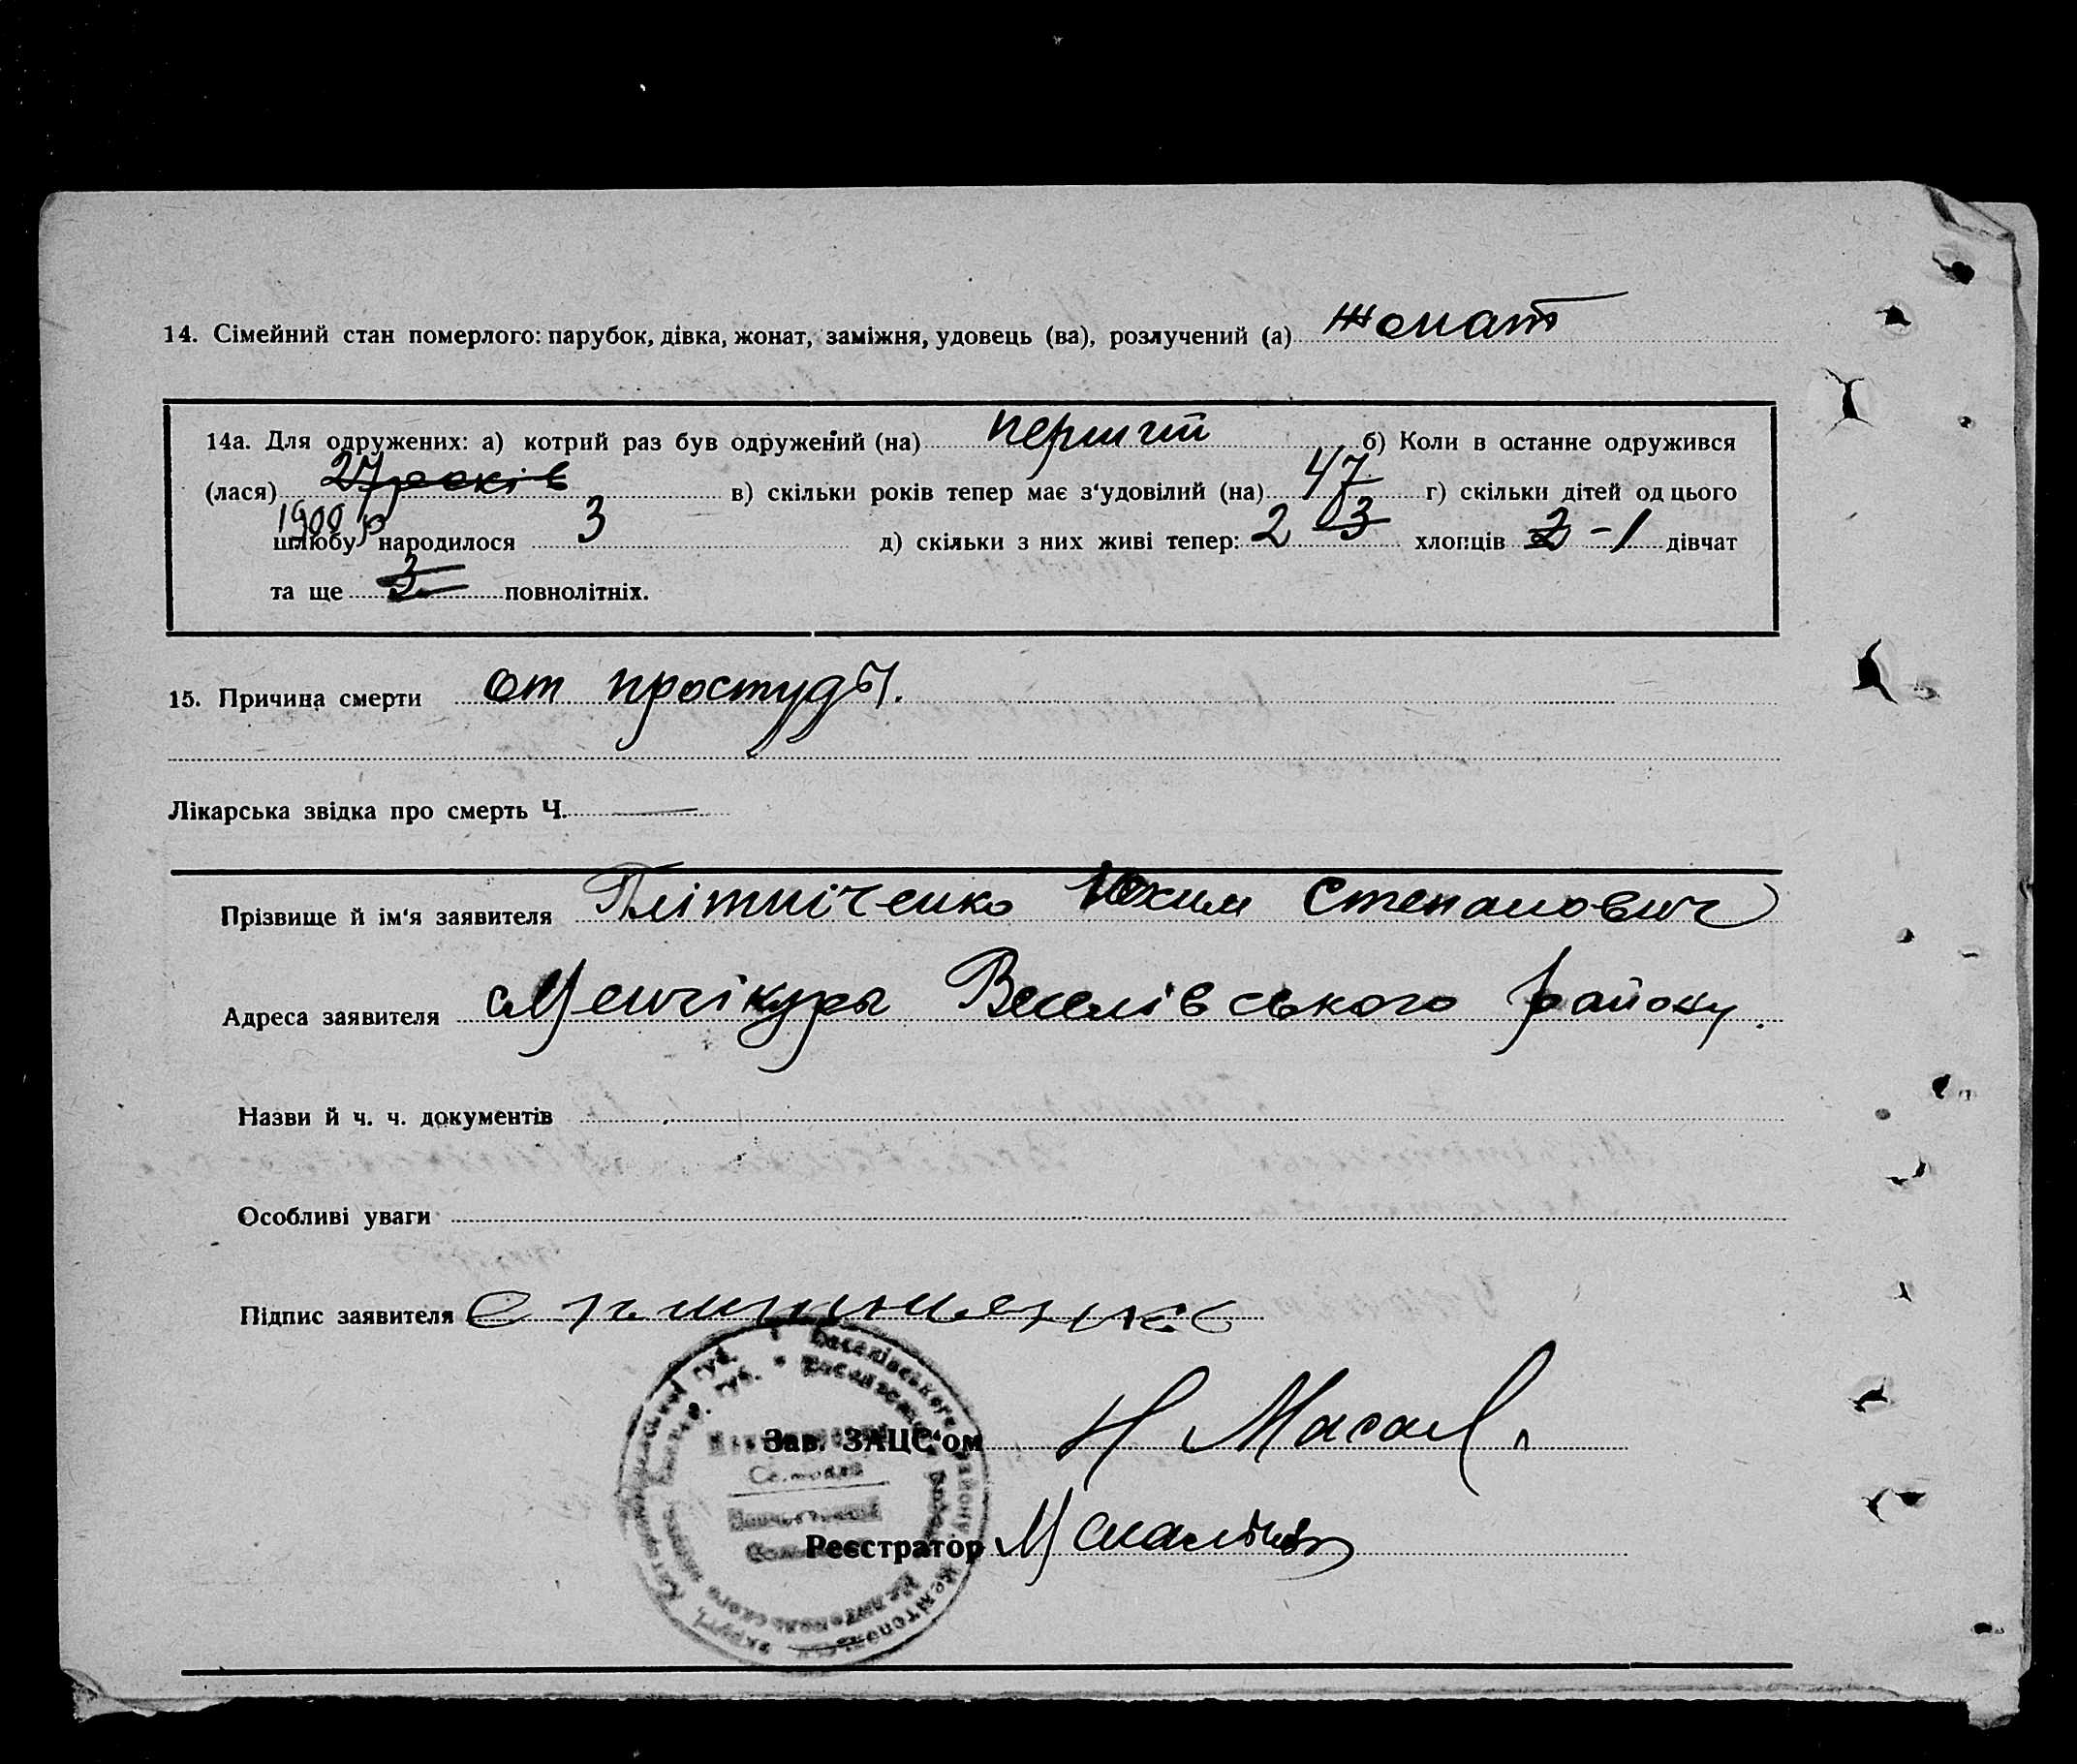 14. Сімейний стан померлого: парубок, дівка, жонат, заміжня, удовець (ва), розлучений (а) жонат
14а. Для одружених: а) котрий раз був одружений (на) перший б) Коли в останне одружився
(лася) 27 років в) скільки років тепер має з'удовілий (на) 47 г) скільки дітей од цього
1900 р
шлюбу народилося 3 д) скільки з них живі тепер: 2 3 хлопців 2 - 1 дівчат
та ще 3 повнолітніх.
15. Причина смерти от простуды.
Лікарська звідка про смерть Ч. —
Прізвище й ім'я заявителя Плітніченко Юхим Степанович
Адреса заявителя Менчікуры Веселівського району.
Назви й ч. ч. документів
Особливі уваги
Підпис заявителя
Зав. ЗАЦС'ом Н
Реєстратор
Веселівського району Мелітопол.